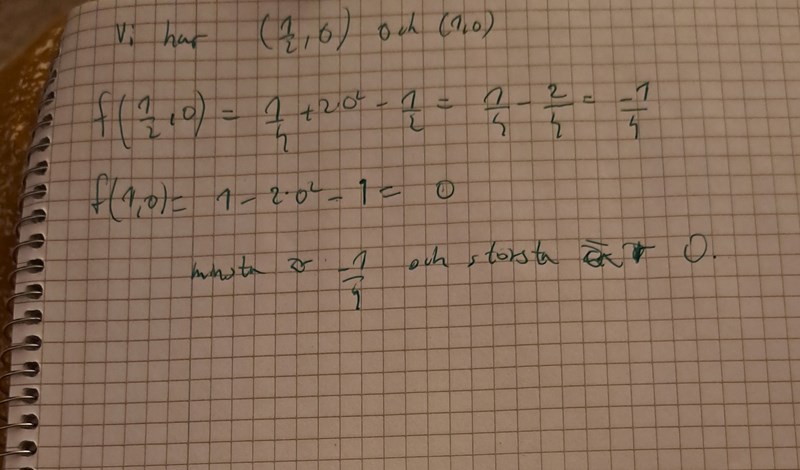 Vi har (1/2, 0) och (1,0)
f(1/2, 0) = 1/4 + 2·0² - 1/2 = 1/4 - 2/4 = -1/4
f(1,0) = 1 - 2·0² - 1 = 0
minsta är -1/4 och största är 0.